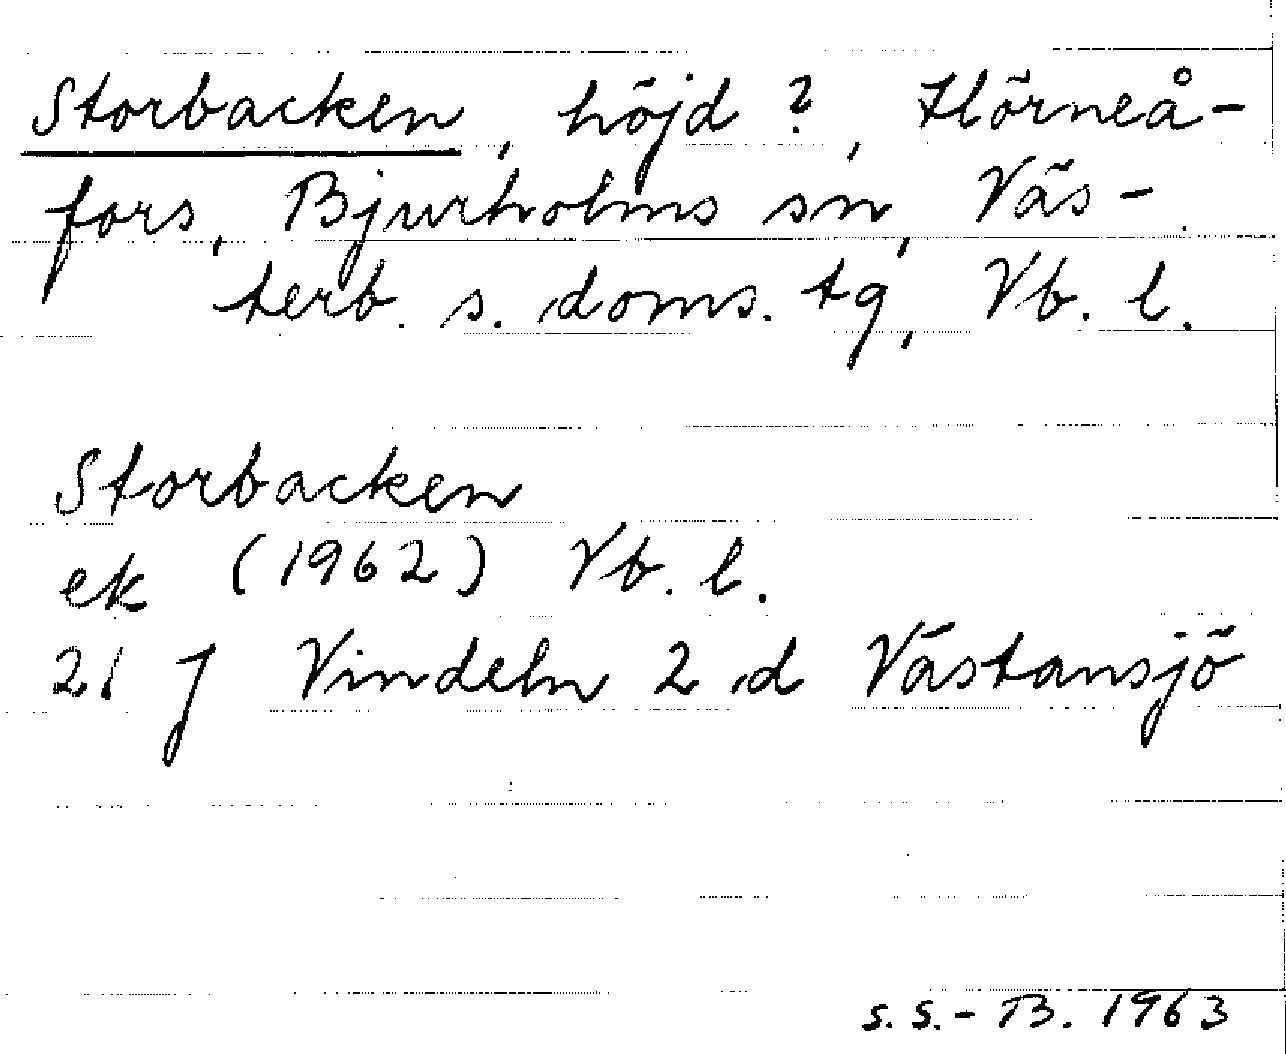 Storbacken, höjd?, Hörneå-
fors, Bjurholms sn, Väs-
terb. s. doms. tg, Vb. l.
Storbacken
ek (1962) Vb. l.
21 J Vindeln 2 d Västansjö
s. s. - B. 1963